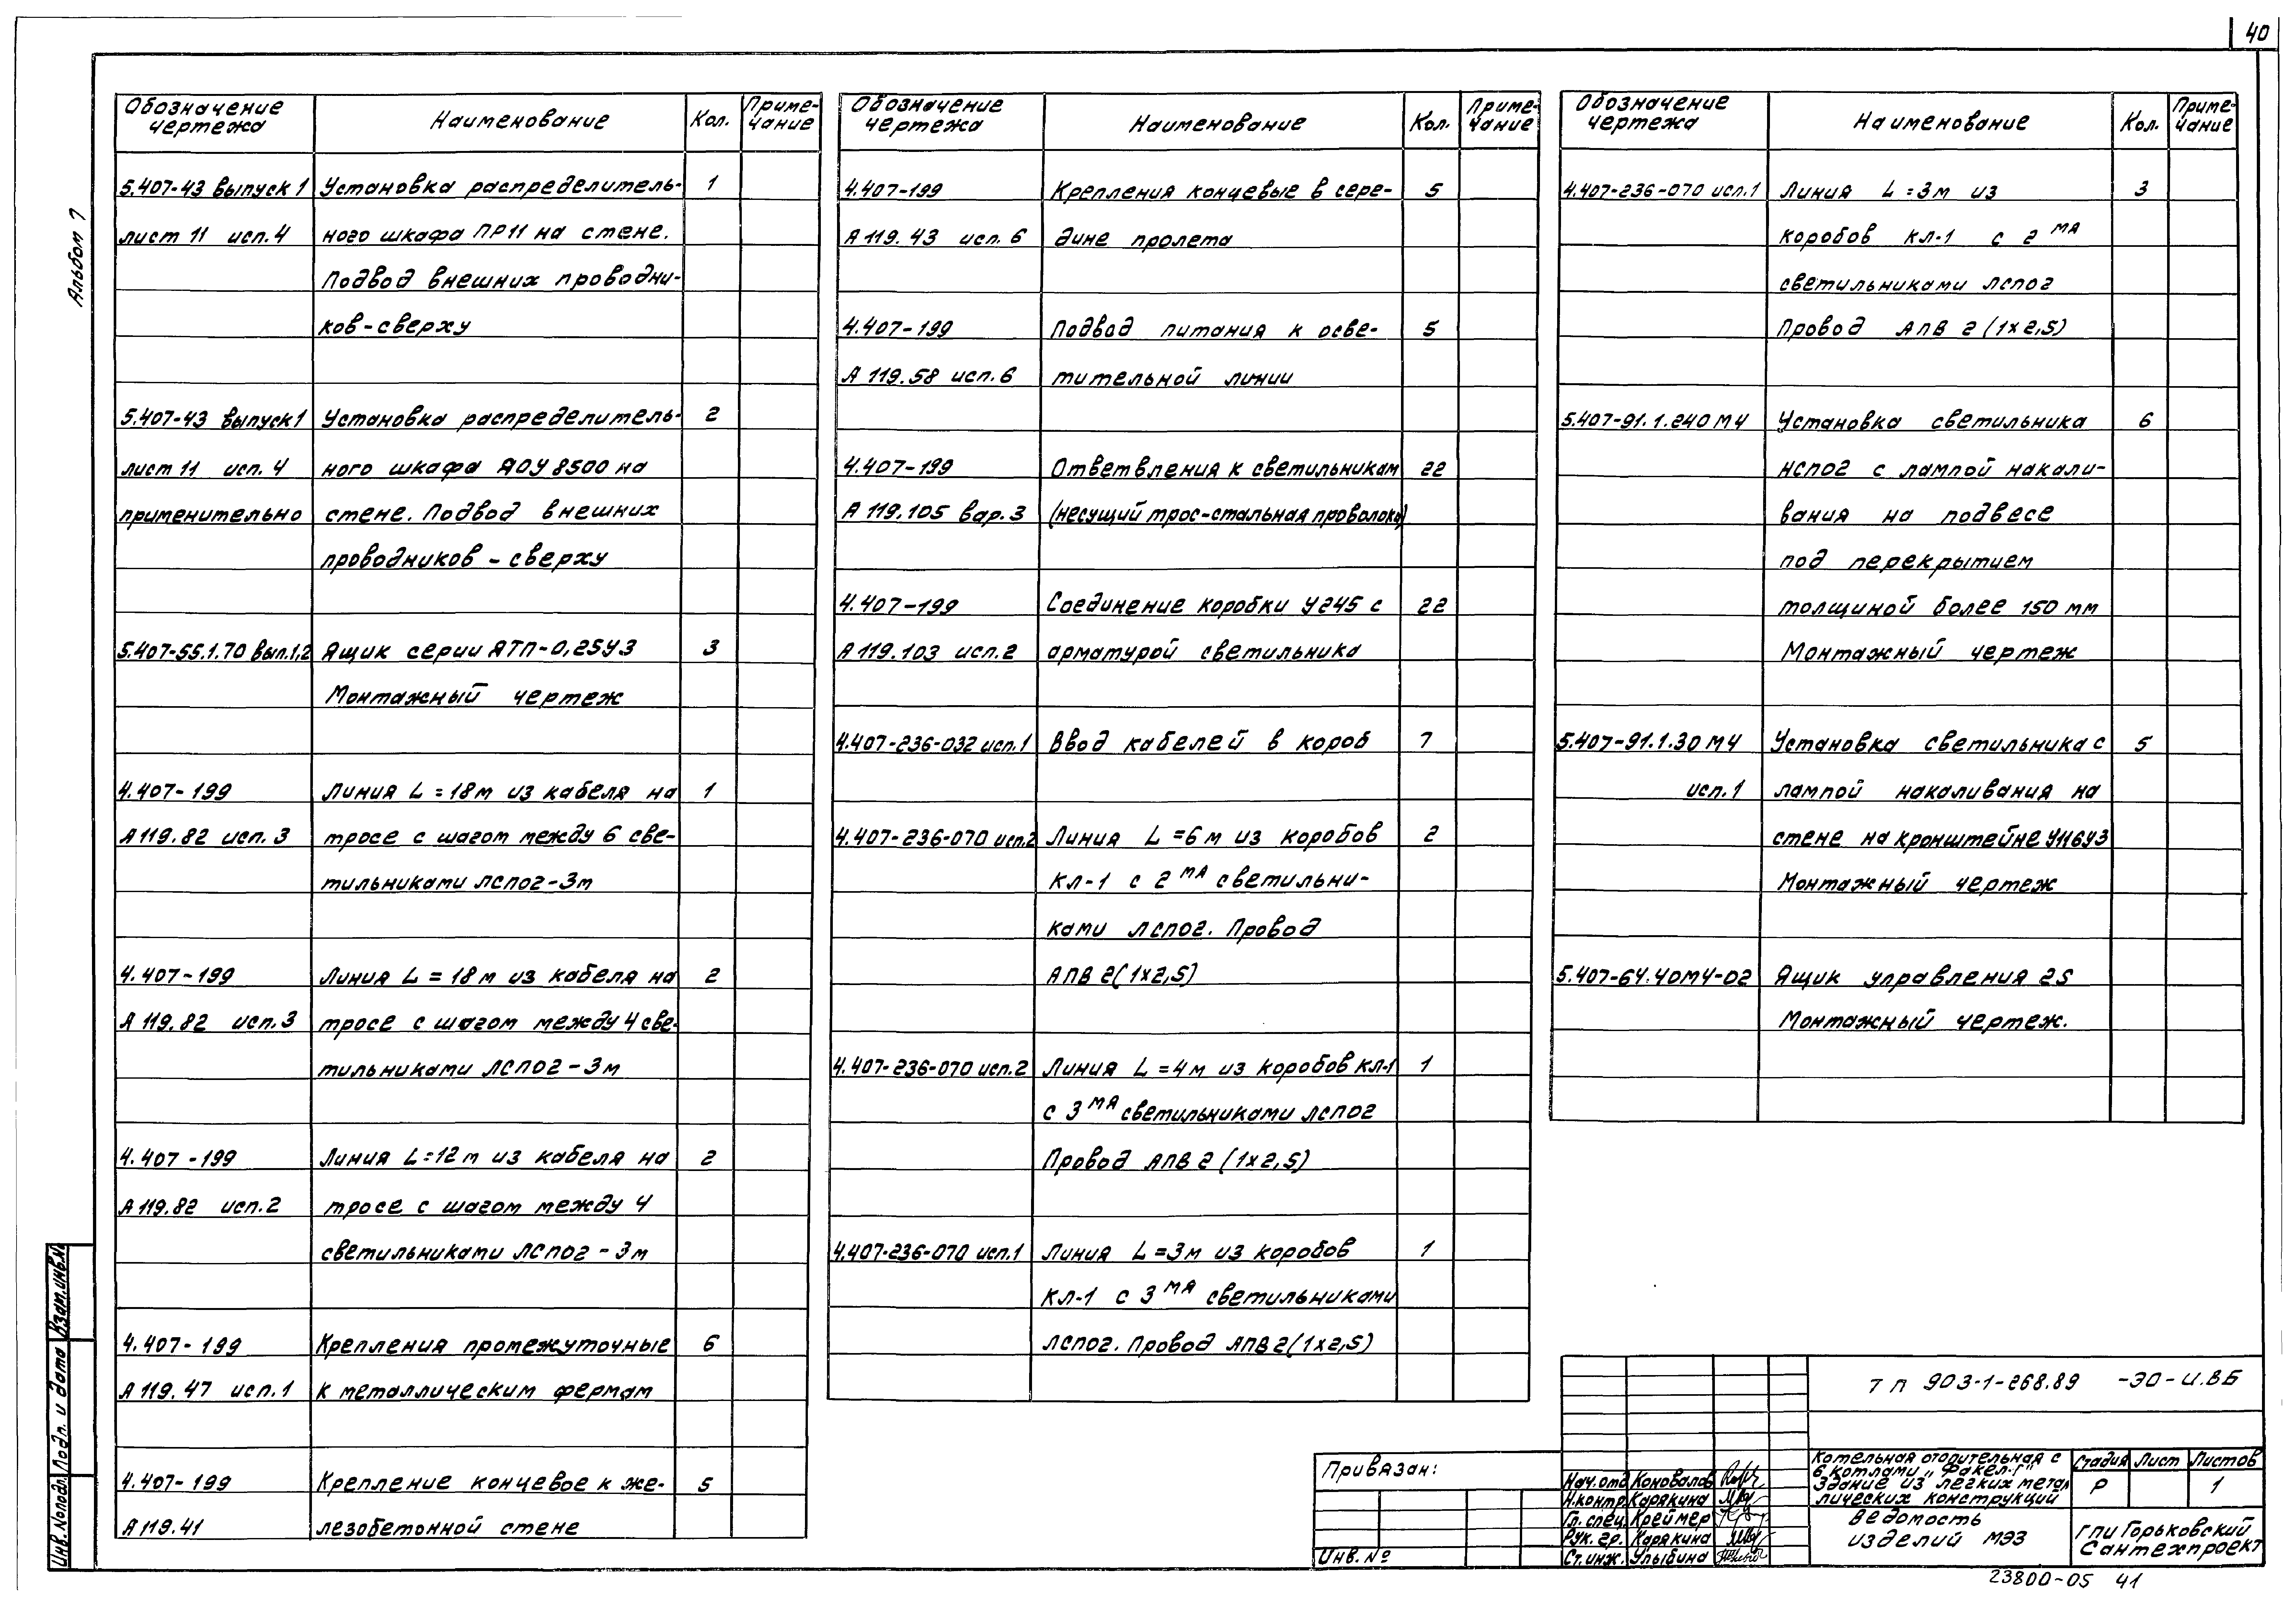 40
Альбом 7
Обозначение чертежа Наименование Кол. Приме-чание
5.407-43 выпуск 1 Установка распределитель- 1
лист 11 исп. 4 ного шкафа ПР11 на стене.
Подвод внешних проводни-
ков-сверху
5.407-43 выпуск 1 Установка распределитель- 2
лист 11 исп. 4 ного шкафа ЯОУ 8500 на
применительно стене. Подвод внешних
проводников - сверху
5.407-55.1.70 вып.1,2 Ящик серии ЯТП-0,25У3 3
Монтажный чертеж
4.407-199 Линия L = 18м из кабеля на 1
А119.82 исп. 3 тросе с шагом между 6 све-
тильниками ЛСП02-3м
4.407-199 Линия L = 18м из кабеля на 2
А119.82 исп. 3 тросе с шагом между 4 све-
тильниками ЛСП02-3м
4.407-199 Линия L=12м из кабеля на 2
А119.82 исп. 2 тросе с шагом между 4
светильниками ЛСП02-3м
4.407-199 Крепления промежуточные 6
А119.47 исп. 1 к металлическим фермам
4.407-199 Крепление концевое к же- 5
А119.41 лезобетонной стене
Обозначение чертежа Наименование Кол. Приме-чание
4.407-199 Крепления концевые в сере- 5
А119.43 исп. 6 дине пролета
4.407-199 Подвод питания к осве- 5
А119.58 исп. 6 тительной линии
4.407-199 Ответвления к светильникам 22
А119.105 вар. 3 (несущий трос-стальная проволока)
4.407-199 Соединение коробки У245 с 22
А119.103 исп. 2 арматурой светильника
4.407-236-032 исп.1 Ввод кабелей в короб 7
4.407-236-070 исп.2 Линия L = 6м из коробов 2
КЛ-1 с 2МЯ светильни-
ками ЛСП02. Провод
АПВ 2(1х2,5)
4.407-236-070 исп.2 Линия L = 4м из коробов КЛ-1 1
с 3МЯ светильниками ЛСП02
Провод АПВ 2 (1х2,5)
4.407-236-070 исп.1 Линия L = 3м из коробов 1
КЛ-1 с 3МЯ светильниками
ЛСП02. Провод АПВ 2(1х2,5)
Обозначение чертежа Наименование Кол. Приме-чание
4.407-236-070 исп.1 Линия L = 3м из 3
коробов КЛ-1 с 2МЯ
светильниками ЛСП02
Провод АПВ 2 (1х2,5)
5.407-91.1.240 МЧ Установка светильника 6
НСП02 с лампой накали-
вания на подвесе
под перекрытием
толщиной более 150 мм
Монтажный чертеж
5.407-91.1.30 МЧ Установка светильника с 5
исп.1 лампой накаливания на
стене на кронштейне У116У3
Монтажный чертеж
5.407-64.40МЧ-02 Ящик управления 25
Монтажный чертеж.
Взам.инв.№
Подп. и дата
Инв.№подл.
Привязан:
Инв. №
ТП 903-1-268.89 -ЭО-И.ВБ
Нач.отд Коновалов
Н.контр. Карякина
Гл. спец. Креймер
Рук. гр. Карякина
Ст.инж. Улыбина
Котельная отопительная с
6 котлами "Факел-Г"
Здание из легких метал
лических конструкций
Стадия Лист Листов
Р 1
Ведомость
изделий МЭЗ
ГПИ Горьковский
Сантехпроект
23800-05 41